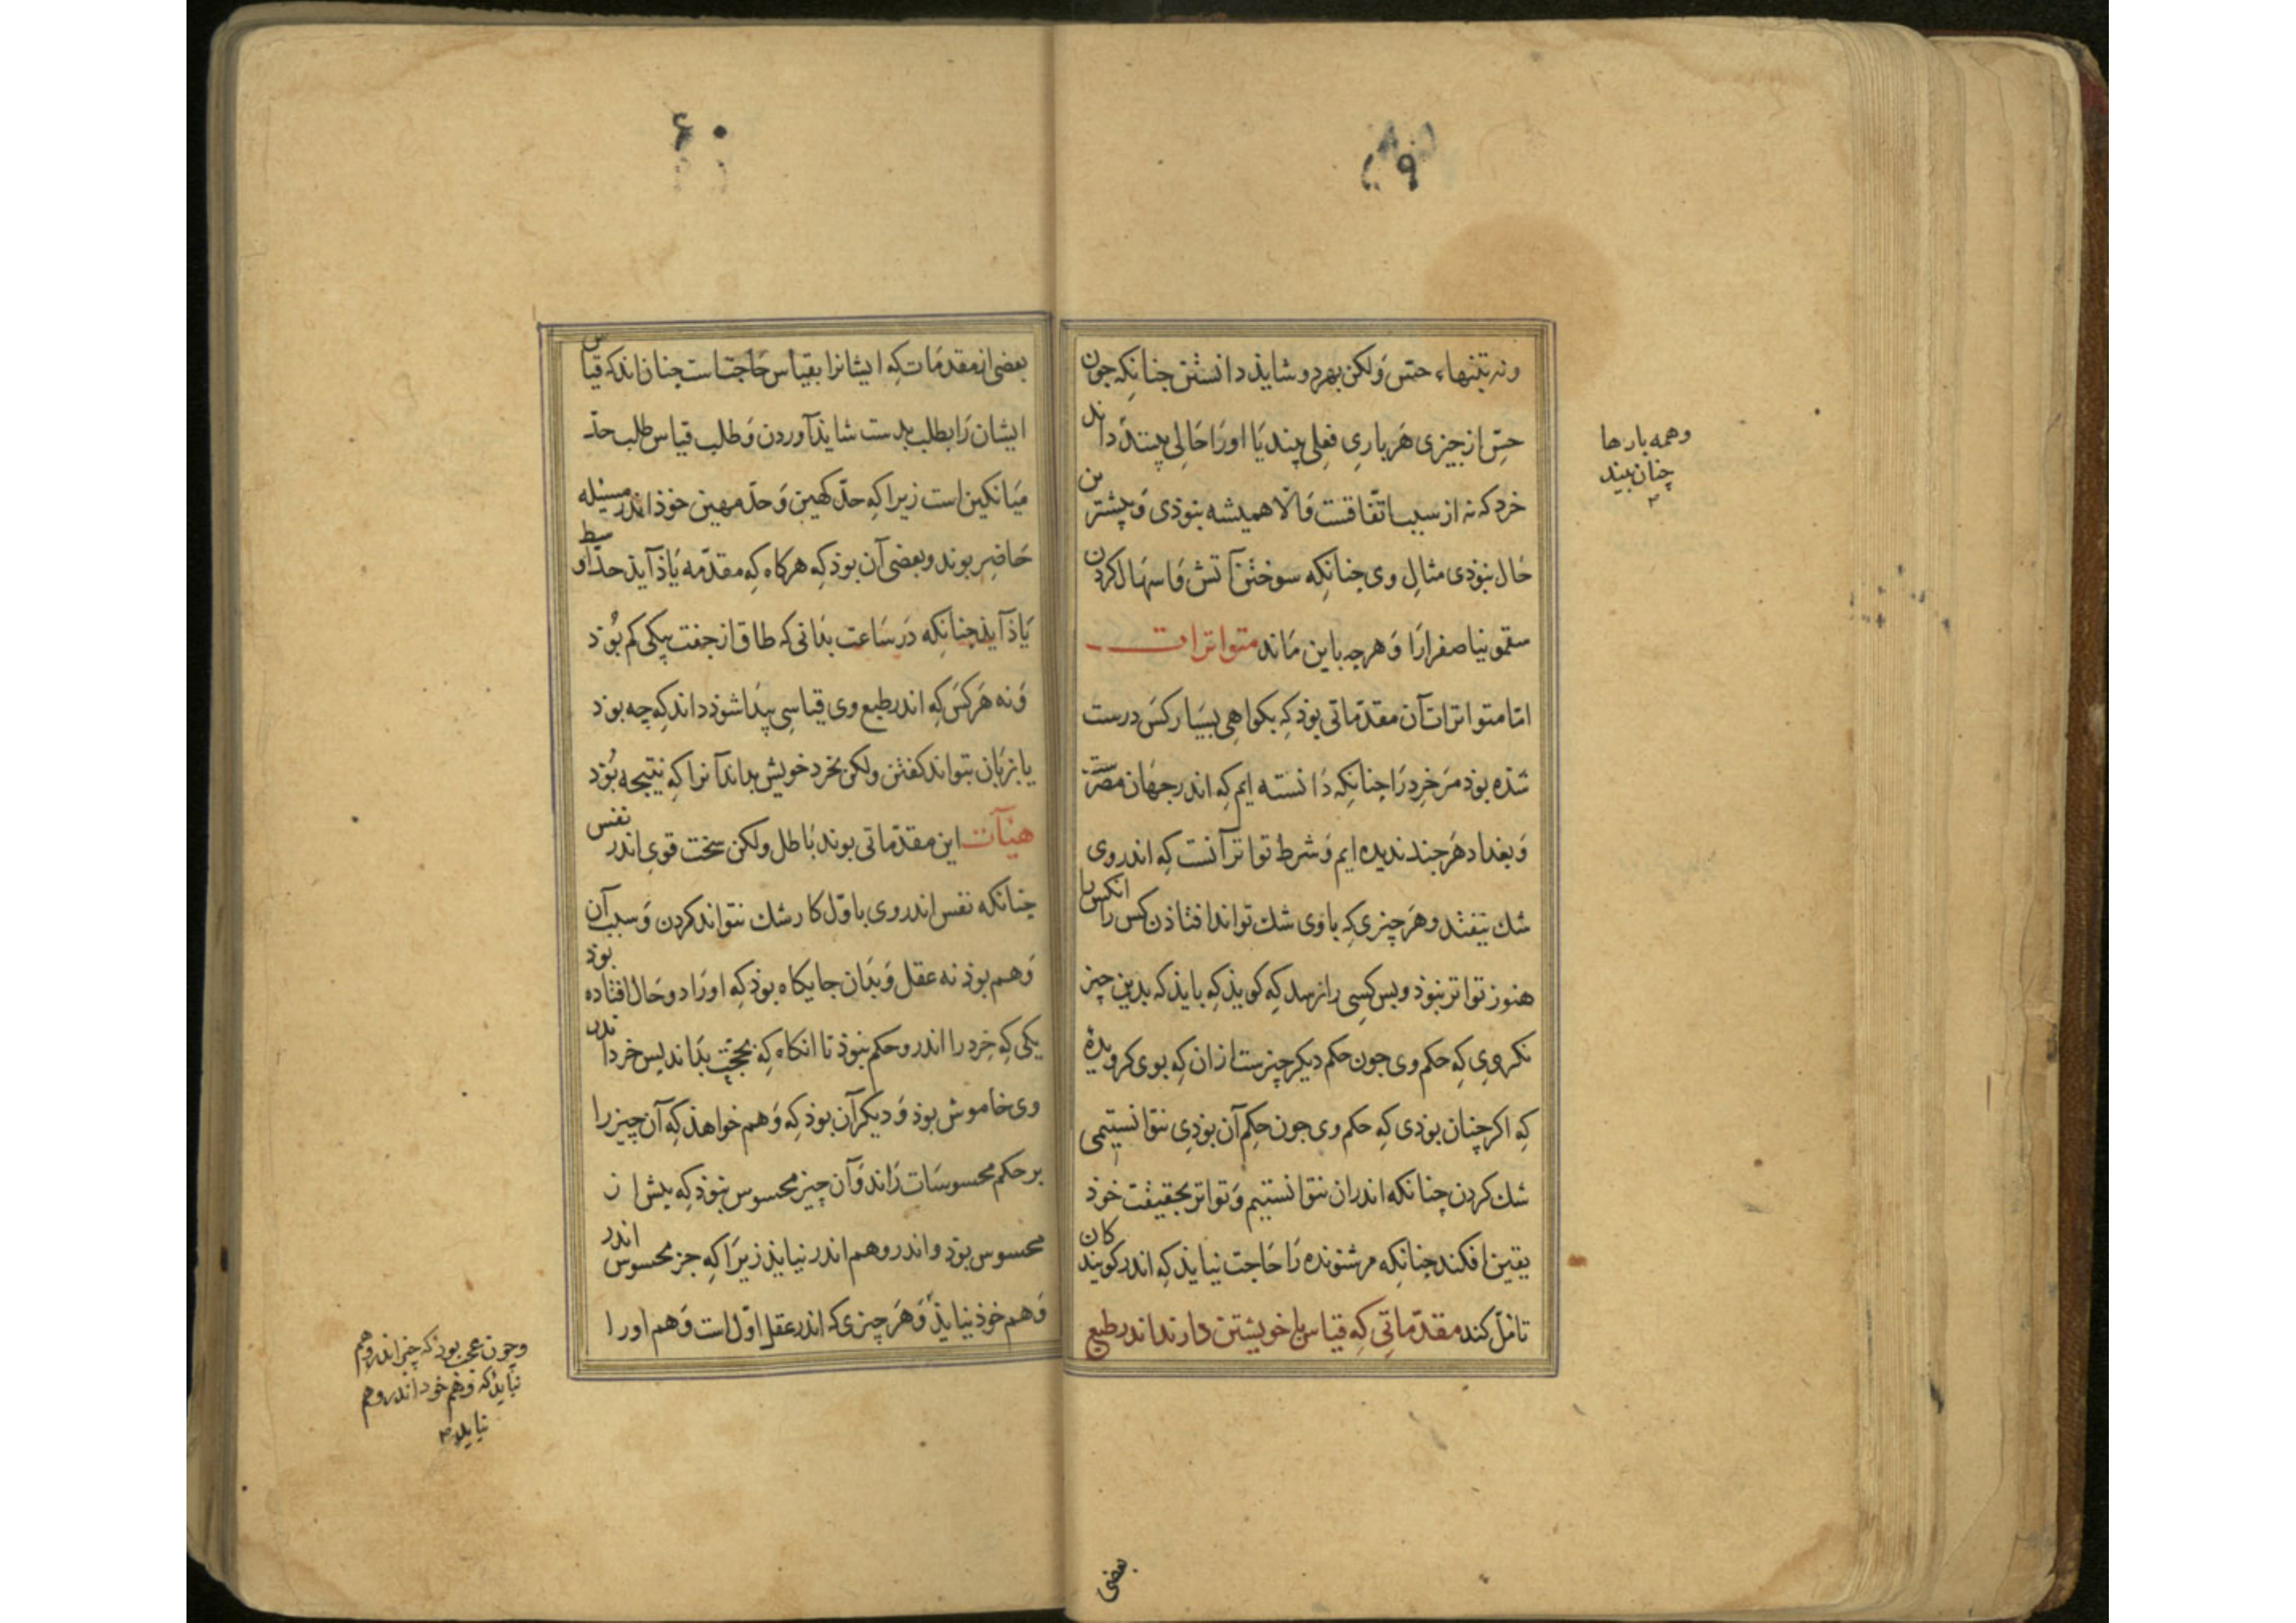 ۵۹
ونه بتنهاء حس ولکن بهردو شاید دانستن جنانکه جون
حس از جیزی هر باری فعلی بیند یا اورا حالی بیند داند
وهمه بارها
چنان بیند
خرد که نه از سبب اتفاقست والا همیشه نبوذی و بیشترین
حال نبوذی مثال وی جنانکه سوختن آتش و اسهال کردن
سقمونیا صفرا را و هرجه باین ماند متواترات
اما متواترات آن مقدماتی بوذ که بکواهی بسیار کس درست
شذه بوذ مر خرد را جنانکه دانسته ایم که اندر جهان مصرست
و بغداد هرجند ندیده ایم و شرط تواتر آنست که اندر وی
شک نیفتد وهر چیزی که باوی شک تواند افتاذن کس را انکس را
هنوز تواتر نبوذ و بس کسی را نرسد که کویذ که بایذ که بدین چیز
نکروی که حکم وی جون حکم دیکر چیزست از ان که بوی کرویدهٔ
که اکر چنان بوذی که حکم وی جون حکم آن بوذی نتوانستیمی
شک کردن چنانکه اندران نتوانستیم و تواتر بحقیقت خوذ
یقین افکند جنانکه مر شنونده را حاجت نیایذ که اندر کویندکان
تامل کند مقدماتی که قیاس با خویشتن دارند اندر طبع
بعضی
۶۰
بعضی از مقدمات که ایشانرا بقیاس حاجتست جنان اند که قیاس
ایشان را بطلب بدست شایذ آوردن و طلب قیاس طلب حد
میانکین است زیرا که حد کهین و حد مهین خوذ اندر مسئله
حاضر بوند و بعضی آن بوذ که هرکاه که مقدمه یاذ آیذ حد اوسط
یاذ آیذ جنانکه در ساعت بدانی که طاق از جفت بیکی کم بوذ
و نه هر کس که اندر طبع وی قیاسی پیدا شوذ داند که چه بوذ
یا بزبان بتواند کفتن ولکن بخرد خویش بداند آنرا که نتیجه بوذ
هنیآت این مقدماتی بوند باطل ولکن سخت قوی اندر نفس
چنانکه نفس اندر وی باول کار شک نتواند کردن و سبب آن
وهم بوذ نه عقل و بدان جایکاه بوذ که اورا دو حال افتاده بوذ
یکی که خرد را اندرو حکم نبوذ تا انکاه که بحجت بداند بس خرد اندر
وی خاموش بوذ و دیکر آن بوذ که وهم خواهذ که آن چیز را
بر حکم محسوسات راند و آن چیز محسوس نبوذ که بیش از
محسوس بوذ و اندر وهم اندر نیایذ زیرا که جز محسوس اندر
وهم خوذ نیایذ و هر چیزی که اندر عقل اول است وهم اورا
وچون عجب بوذ که چیز اندر وهم
نیایذ که وهم خود اندر وهم
نیاید